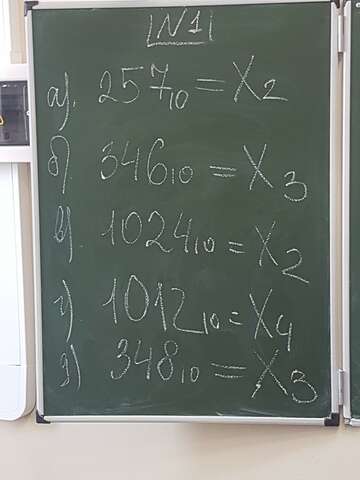 N1
а). 257₁₀ = X₂
б) 346₁₀ = X₃
в) 1024₁₀ = X₂
г) 1012₁₀ = X₄
д) 348₁₀ = X₃